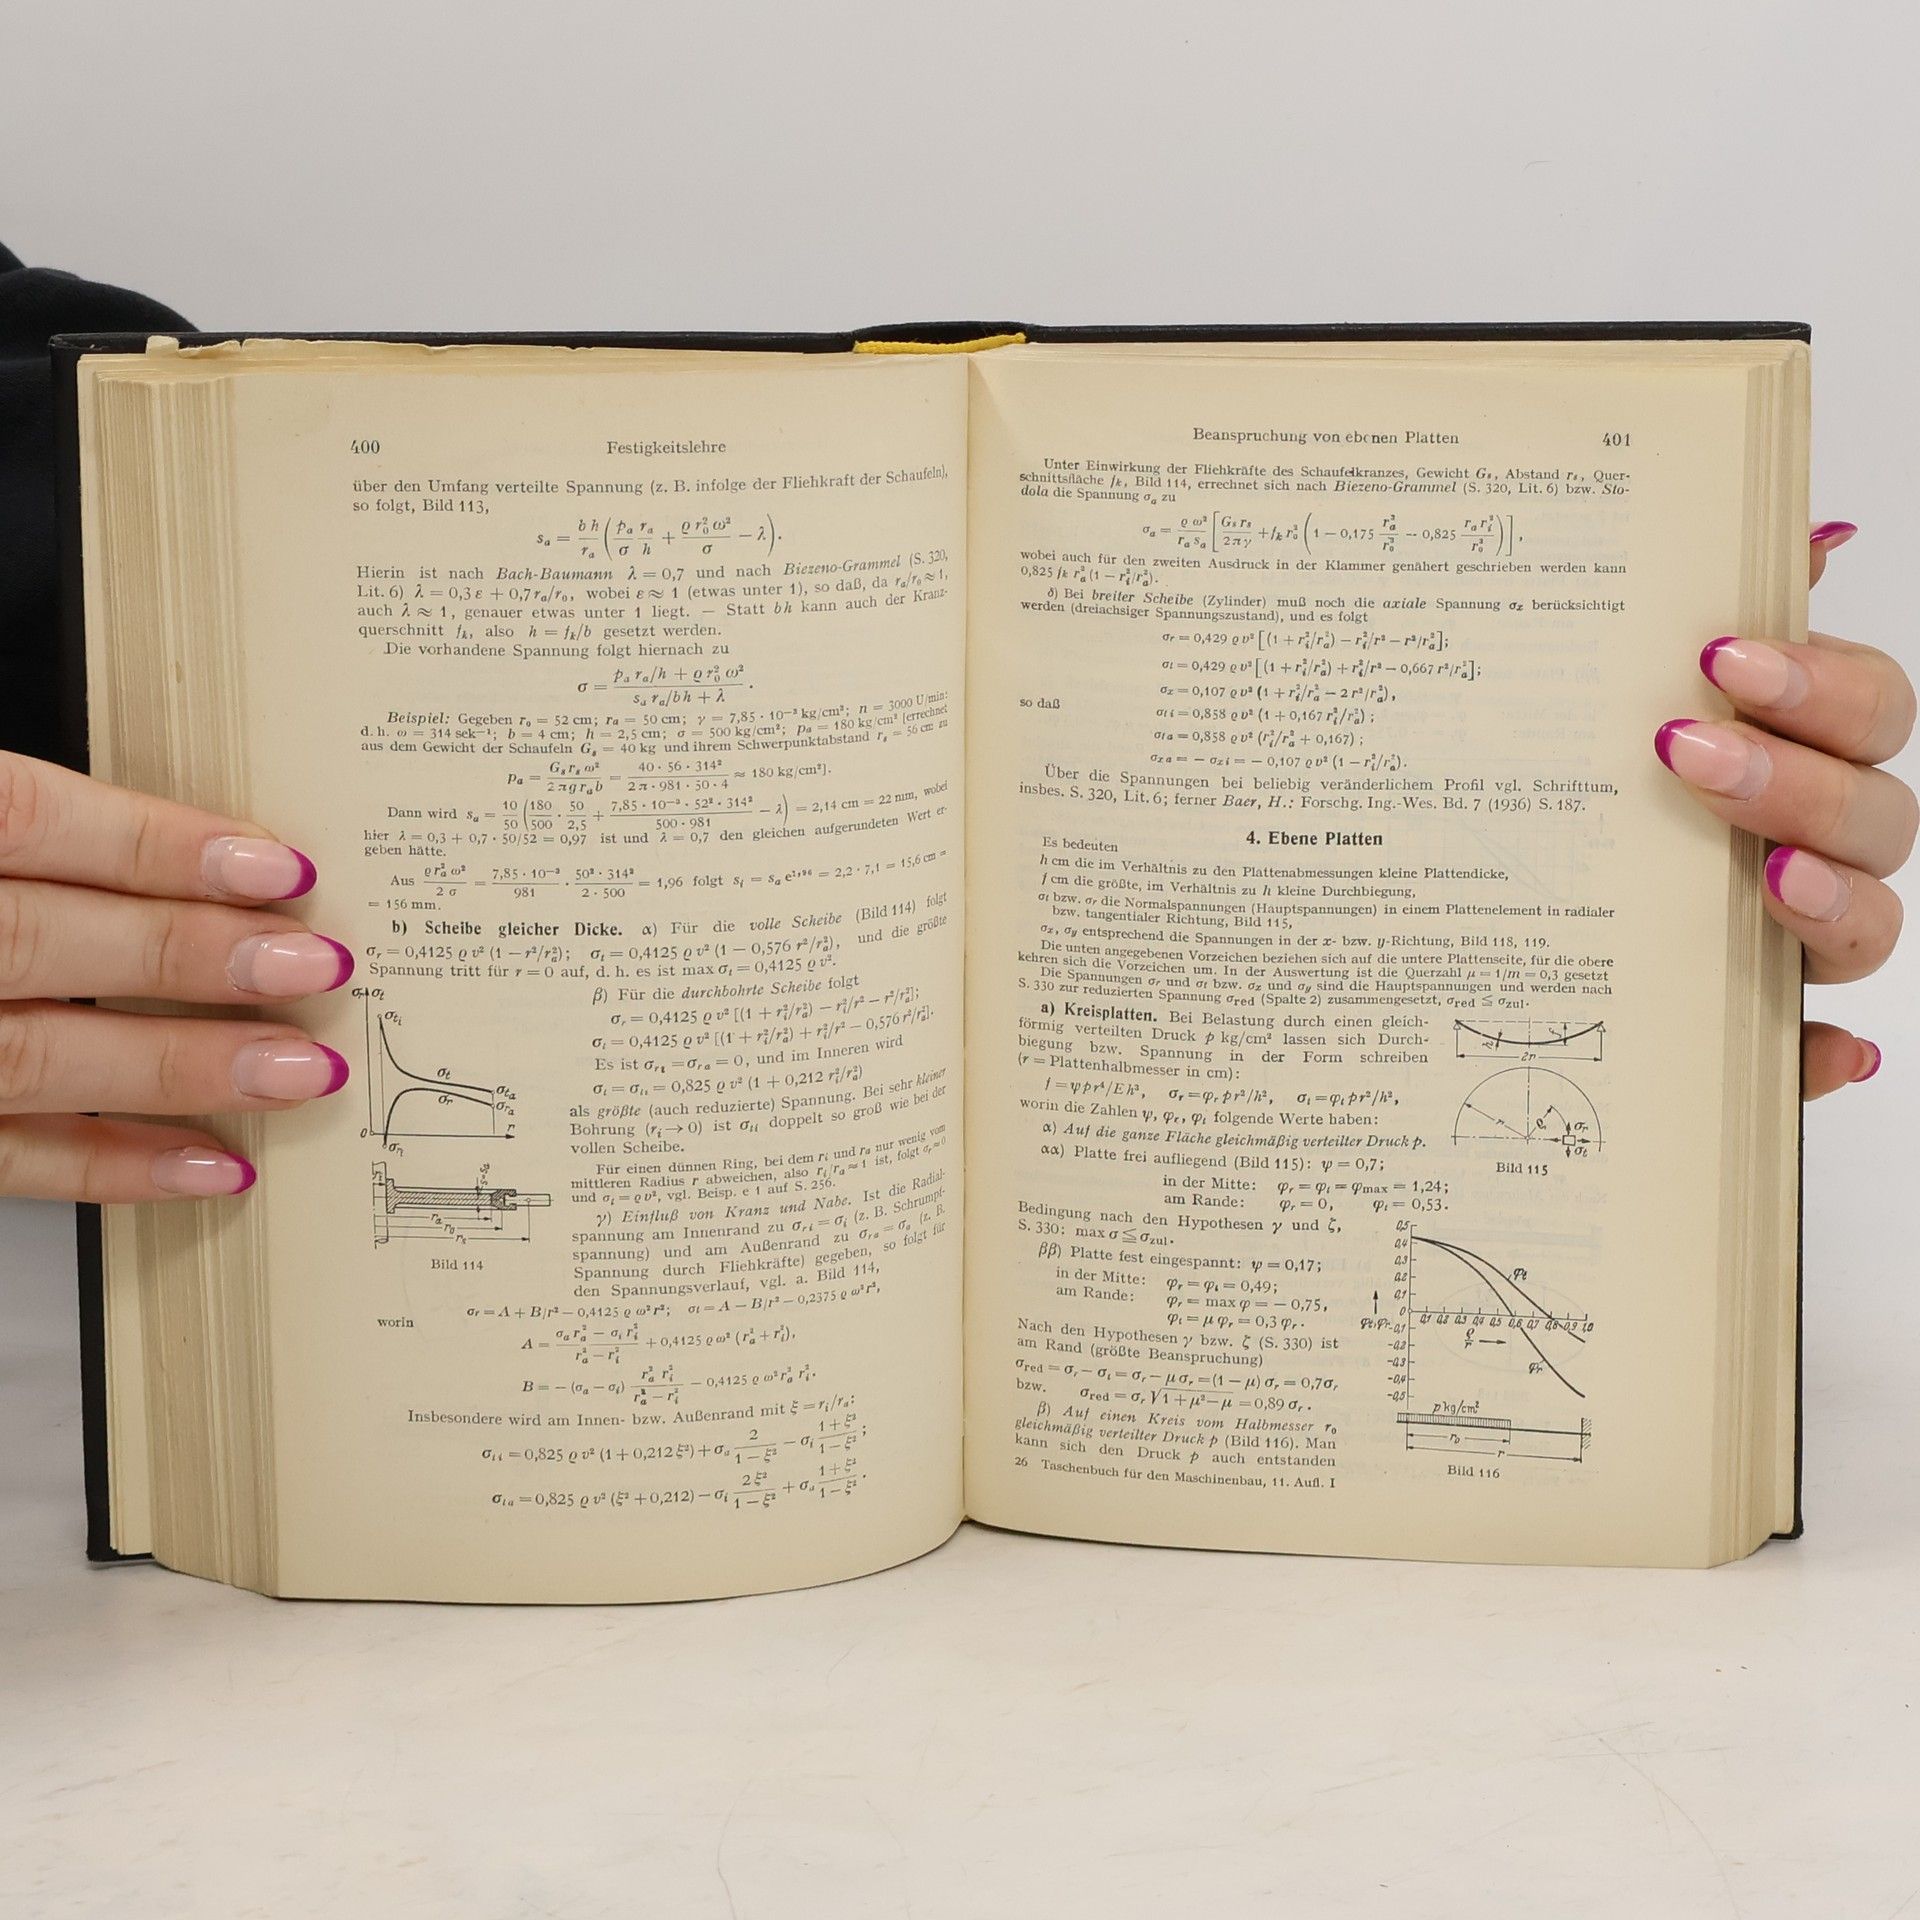 400 Festigkeitslehre
über den Umfang verteilte Spannung (z. B. infolge der Fliehkraft der Schaufeln),
so folgt, Bild 113,
sₐ = b h / rₐ ( pₐ rₐ / σ h + ϱ r₀² ω² / σ − λ ).
Hierin ist nach Bach-Baumann λ = 0,7 und nach Biezeno-Grammel (S. 320,
Lit. 6) λ = 0,3 ε + 0,7 rₐ/r₀, wobei ε ≈ 1 (etwas unter 1), so daß, da rₐ/r₀ ≈ 1,
auch λ ≈ 1, genauer etwas unter 1 liegt. — Statt bh kann auch der Kranz-
querschnitt fₖ, also h = fₖ/b gesetzt werden.
Die vorhandene Spannung folgt hiernach zu
σ = (pₐ rₐ/h + ϱ r₀² ω²) / (sₐ rₐ/bh + λ).
Beispiel: Gegeben r₀ = 52 cm; rₐ = 50 cm; γ = 7,85 · 10⁻³ kg/cm³; n = 3000 U/min;
d. h. ω = 314 sek⁻¹; b = 4 cm; h = 2,5 cm; σ = 500 kg/cm²; pₐ = 180 kg/cm² [errechnet
aus dem Gewicht der Schaufeln Gₛ = 40 kg und ihrem Schwerpunktabstand rₛ = 56 cm zu
pₐ = Gₛ rₛ ω² / 2 π g rₐ b = 40 · 56 · 314² / 2 π · 981 · 50 · 4 ≈ 180 kg/cm²].
Dann wird sₐ = 10/50 ( 180/500 · 50/2,5 + 7,85 · 10⁻³ · 52² · 314² / 500 · 981 − λ ) = 2,14 cm = 22 mm, wobei
hier λ = 0,3 + 0,7 · 50/52 = 0,97 ist und λ = 0,7 den gleichen aufgerundeten Wert er-
geben hätte.
Aus ϱ rₐ² ω² / 2 σ = 7,85 · 10⁻³ / 981 · 50² · 314² / 2 · 500 = 1,96 folgt sᵢ = sₐ e¹,⁹⁶ = 2,2 · 7,1 = 15,6 cm =
= 156 mm.
b) Scheibe gleicher Dicke. α) Für die volle Scheibe (Bild 114) folgt
σᵣ = 0,4125 ϱ v² (1 − r²/rₐ²); σₜ = 0,4125 ϱ v² (1 − 0,576 r²/rₐ²), und die größte
Spannung tritt für r = 0 auf, d. h. es ist max σₜ = 0,4125 ϱ v².
β) Für die durchbohrte Scheibe folgt
σᵣ = 0,4125 ϱ v² [(1 + rᵢ²/rₐ²) − rᵢ²/r² − r²/rₐ²];
σₜ = 0,4125 ϱ v² [(1 + rᵢ²/rₐ²) + rᵢ²/r² − 0,576 r²/rₐ²].
Es ist σᵣᵢ = σᵣₐ = 0, und im Inneren wird
σₜ = σₜᵢ = 0,825 ϱ v² (1 + 0,212 rᵢ²/rₐ²)
als größte (auch reduzierte) Spannung. Bei sehr kleiner
Bohrung (rᵢ → 0) ist σₜᵢ doppelt so groß wie bei der
vollen Scheibe.
Für einen dünnen Ring, bei dem rᵢ und rₐ nur wenig vom
mittleren Radius r abweichen, also rᵢ/rₐ ≈ 1 ist, folgt σᵣ ≈ 0
und σₜ = ϱ v², vgl. Beisp. e 1 auf S. 256.
γ) Einfluß von Kranz und Nabe. Ist die Radial-
spannung am Innenrand zu σᵣᵢ = σᵢ (z. B. Schrumpf-
spannung) und am Außenrand zu σᵣₐ = σₐ (z. B.
Spannung durch Fliehkräfte) gegeben, so folgt für
den Spannungsverlauf, vgl. a. Bild 114,
σᵣ σₜ
σₜᵢ
σₜ
σₜₐ
σᵣ
σᵣₐ
0
r
σᵣᵢ
rᵢ
rₐ
r₀
rₛ
Bild 114
σᵣ = A + B/r² − 0,4125 ϱ ω² r²; σₜ = A − B/r² − 0,2375 ϱ ω² r²,
worin
A = (σₐ rₐ² − σᵢ rᵢ²) / (rₐ² − rᵢ²) + 0,4125 ϱ ω² (rₐ² + rᵢ²),
B = − (σₐ − σᵢ) rₐ² rᵢ² / (rₐ² − rᵢ²) − 0,4125 ϱ ω² rₐ² rᵢ².
Insbesondere wird am Innen- bzw. Außenrand mit ξ = rᵢ/rₐ:
σₜᵢ = 0,825 ϱ v² (1 + 0,212 ξ²) + σₐ 2 / (1 − ξ²) − σᵢ (1 + ξ²) / (1 − ξ²);
σₜₐ = 0,825 ϱ v² (ξ² + 0,212) − σᵢ 2 ξ² / (1 − ξ²) + σₐ (1 + ξ²) / (1 − ξ²).
Beanspruchung von ebenen Platten 401
Unter Einwirkung der Fliehkräfte des Schaufelkranzes, Gewicht Gₛ, Abstand rₛ, Quer-
schnittsfläche fₖ, Bild 114, errechnet sich nach Biezeno-Grammel (S. 320, Lit. 6) bzw. Sto-
dola die Spannung σₐ zu
σₐ = ϱ ω² / rₐ sₐ [ Gₛ rₛ / 2 π γ + fₖ r₀² ( 1 − 0,175 rₐ²/r₀² − 0,825 rₐ rᵢ²/r₀³ ) ],
wobei auch für den zweiten Ausdruck in der Klammer genähert geschrieben werden kann
0,825 fₖ rₐ² (1 − rᵢ²/rₐ²).
δ) Bei breiter Scheibe (Zylinder) muß noch die axiale Spannung σₓ berücksichtigt
werden (dreiachsiger Spannungszustand), und es folgt
σᵣ = 0,429 ϱ v² [(1 + rᵢ²/rₐ²) − rᵢ²/r² − r²/rₐ²];
σₜ = 0,429 ϱ v² [(1 + rᵢ²/rₐ²) + rᵢ²/r² − 0,667 r²/rₐ²];
σₓ = 0,107 ϱ v² (1 + rᵢ²/rₐ² − 2 r²/rₐ²),
so daß
σₜᵢ = 0,858 ϱ v² (1 + 0,167 rᵢ²/rₐ²);
σₜₐ = 0,858 ϱ v² (rᵢ²/rₐ² + 0,167);
σₓₐ = − σₓᵢ = − 0,107 ϱ v² (1 − rᵢ²/rₐ²).
Über die Spannungen bei beliebig veränderlichem Profil vgl. Schrifttum,
insbes. S. 320, Lit. 6; ferner Baer, H.: Forschg. Ing.-Wes. Bd. 7 (1936) S. 187.
4. Ebene Platten
Es bedeuten
h cm die im Verhältnis zu den Plattenabmessungen kleine Plattendicke,
f cm die größte, im Verhältnis zu h kleine Durchbiegung,
σₜ bzw. σᵣ die Normalspannungen (Hauptspannungen) in einem Plattenelement in radialer
bzw. tangentialer Richtung, Bild 115,
σₓ, σy entsprechend die Spannungen in der x- bzw. y-Richtung, Bild 118, 119.
Die unten angegebenen Vorzeichen beziehen sich auf die untere Plattenseite, für die obere
kehren sich die Vorzeichen um. In der Auswertung ist die Querzahl μ = 1/m = 0,3 gesetzt
Die Spannungen σᵣ und σₜ bzw. σₓ und σy sind die Hauptspannungen und werden nach
S. 330 zur reduzierten Spannung σred (Spalte 2) zusammengesetzt, σred ≦ σzul.
a) Kreisplatten. Bei Belastung durch einen gleich-
förmig verteilten Druck p kg/cm² lassen sich Durch-
biegung bzw. Spannung in der Form schreiben
(r = Plattenhalbmesser in cm):
f = ψ p r⁴/E h³, σᵣ = φᵣ p r²/h², σₜ = φₜ p r²/h²,
worin die Zahlen ψ, φᵣ, φₜ folgende Werte haben:
α) Auf die ganze Fläche gleichmäßig verteilter Druck p.
αα) Platte frei aufliegend (Bild 115): ψ = 0,7;
in der Mitte: φᵣ = φₜ = φmax = 1,24;
am Rande: φᵣ = 0, φₜ = 0,53.
h
f
2r
r
ϱ
σᵣ
σₜ
Bild 115
Bedingung nach den Hypothesen γ und ζ,
S. 330: max σ ≦ σzul.
ββ) Platte fest eingespannt: ψ = 0,17;
in der Mitte: φᵣ = φₜ = 0,49;
am Rande: φᵣ = max φ = − 0,75,
φₜ = μ φᵣ = 0,3 φᵣ.
Nach den Hypothesen γ bzw. ζ (S. 330) ist
am Rand (größte Beanspruchung)
σred = σᵣ − σₜ = σᵣ − μ σᵣ = (1 − μ) σᵣ = 0,7 σᵣ
bzw. σred = σᵣ √1 + μ² − μ = 0,89 σᵣ.
β) Auf einen Kreis vom Halbmesser r₀
gleichmäßig verteilter Druck p (Bild 116). Man
kann sich den Druck p auch entstanden
0,5
0,4
0,3
0,2
0,1
0
-0,1
-0,2
-0,3
-0,4
-0,5
0,1 0,2 0,3 0,4 0,5 0,6 0,7 0,8 0,9 1,0
φₜ, φᵣ
ϱ/r
φₜ
φᵣ
p kg/cm²
r₀
r
Bild 116
26 Taschenbuch für den Maschinenbau, 11. Aufl. I